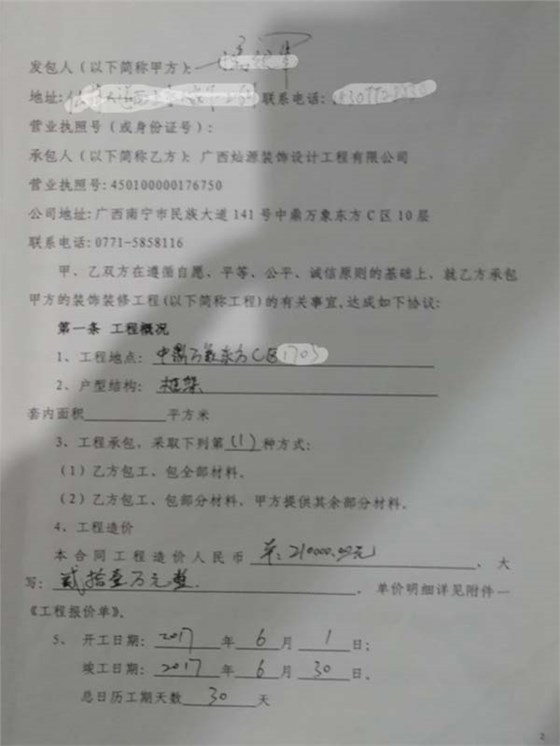 发包人（以下简称甲方）：
地址： 联系电话：
营业执照号（或身份证号）：
承包人（以下简称乙方）：广西灿源装饰设计工程有限公司
营业执照号：450100000176750
公司地址：广西南宁市民族大道141号中鼎万象东方C区10层
联系电话：0771-5858116
甲、乙双方在遵循自愿、平等、公平、诚信原则的基础上，就乙方承包
甲方的装饰装修工程（以下简称工程）的有关事宜，达成如下协议：
第一条 工程概况
1、工程地点：中鼎万象东方C区1703
2、户型结构：框架
套内面积 平方米
3、工程承包，采取下列第（1）种方式：
（1）乙方包工、包全部材料。
（2）乙方包工、包部分材料，甲方提供其余部分材料。
4、工程造价
本合同工程造价人民币 21000.00元，大
写：贰拾壹万元整，单价明细详见附件一
《工程报价单》。
5、开工日期：2017年6月1日；
竣工日期：2017年6月30日。
总日历工期天数30天
2